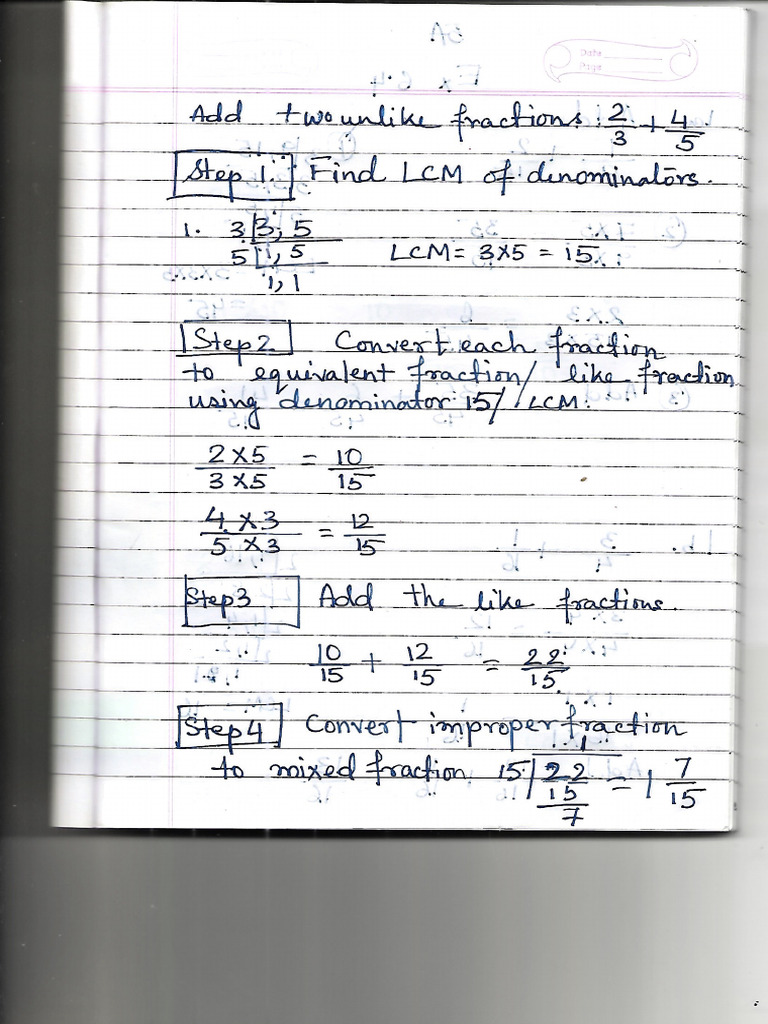 Date
Page
Add two unlike fractions: 2/3 + 4/5
Step 1. Find LCM of denominators.
1. 3 | 3, 5
5 | 1, 5 LCM = 3×5 = 15
1, 1
Step 2 Convert each fraction
to equivalent fraction/ like fraction
using denominator 15/ LCM.
2×5/3×5 = 10/15
4×3/5×3 = 12/15
Step 3 Add the like fractions.
10/15 + 12/15 = 22/15
Step 4 Convert improper fraction
to mixed fraction 15 | 22 = 1 7/15
1
15
7